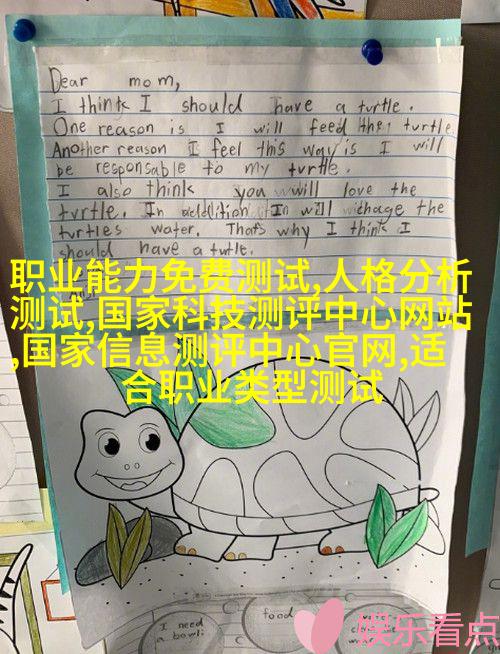 Dear mom,
I think I should have a turtle.
One reason is I will feed the turtle.
Another reason I feel this way is I will
be responsable to my turtle.
I also think you will love the
turtle. In addition I will chage the
turtles water. That's why I think I
should have a turtle.
职业能力免费测试,人格分析
测试,国家科技测评中心网站
,国家信息测评中心官网,适
合职业类型测试
I need
a bowl
food
娱乐看点